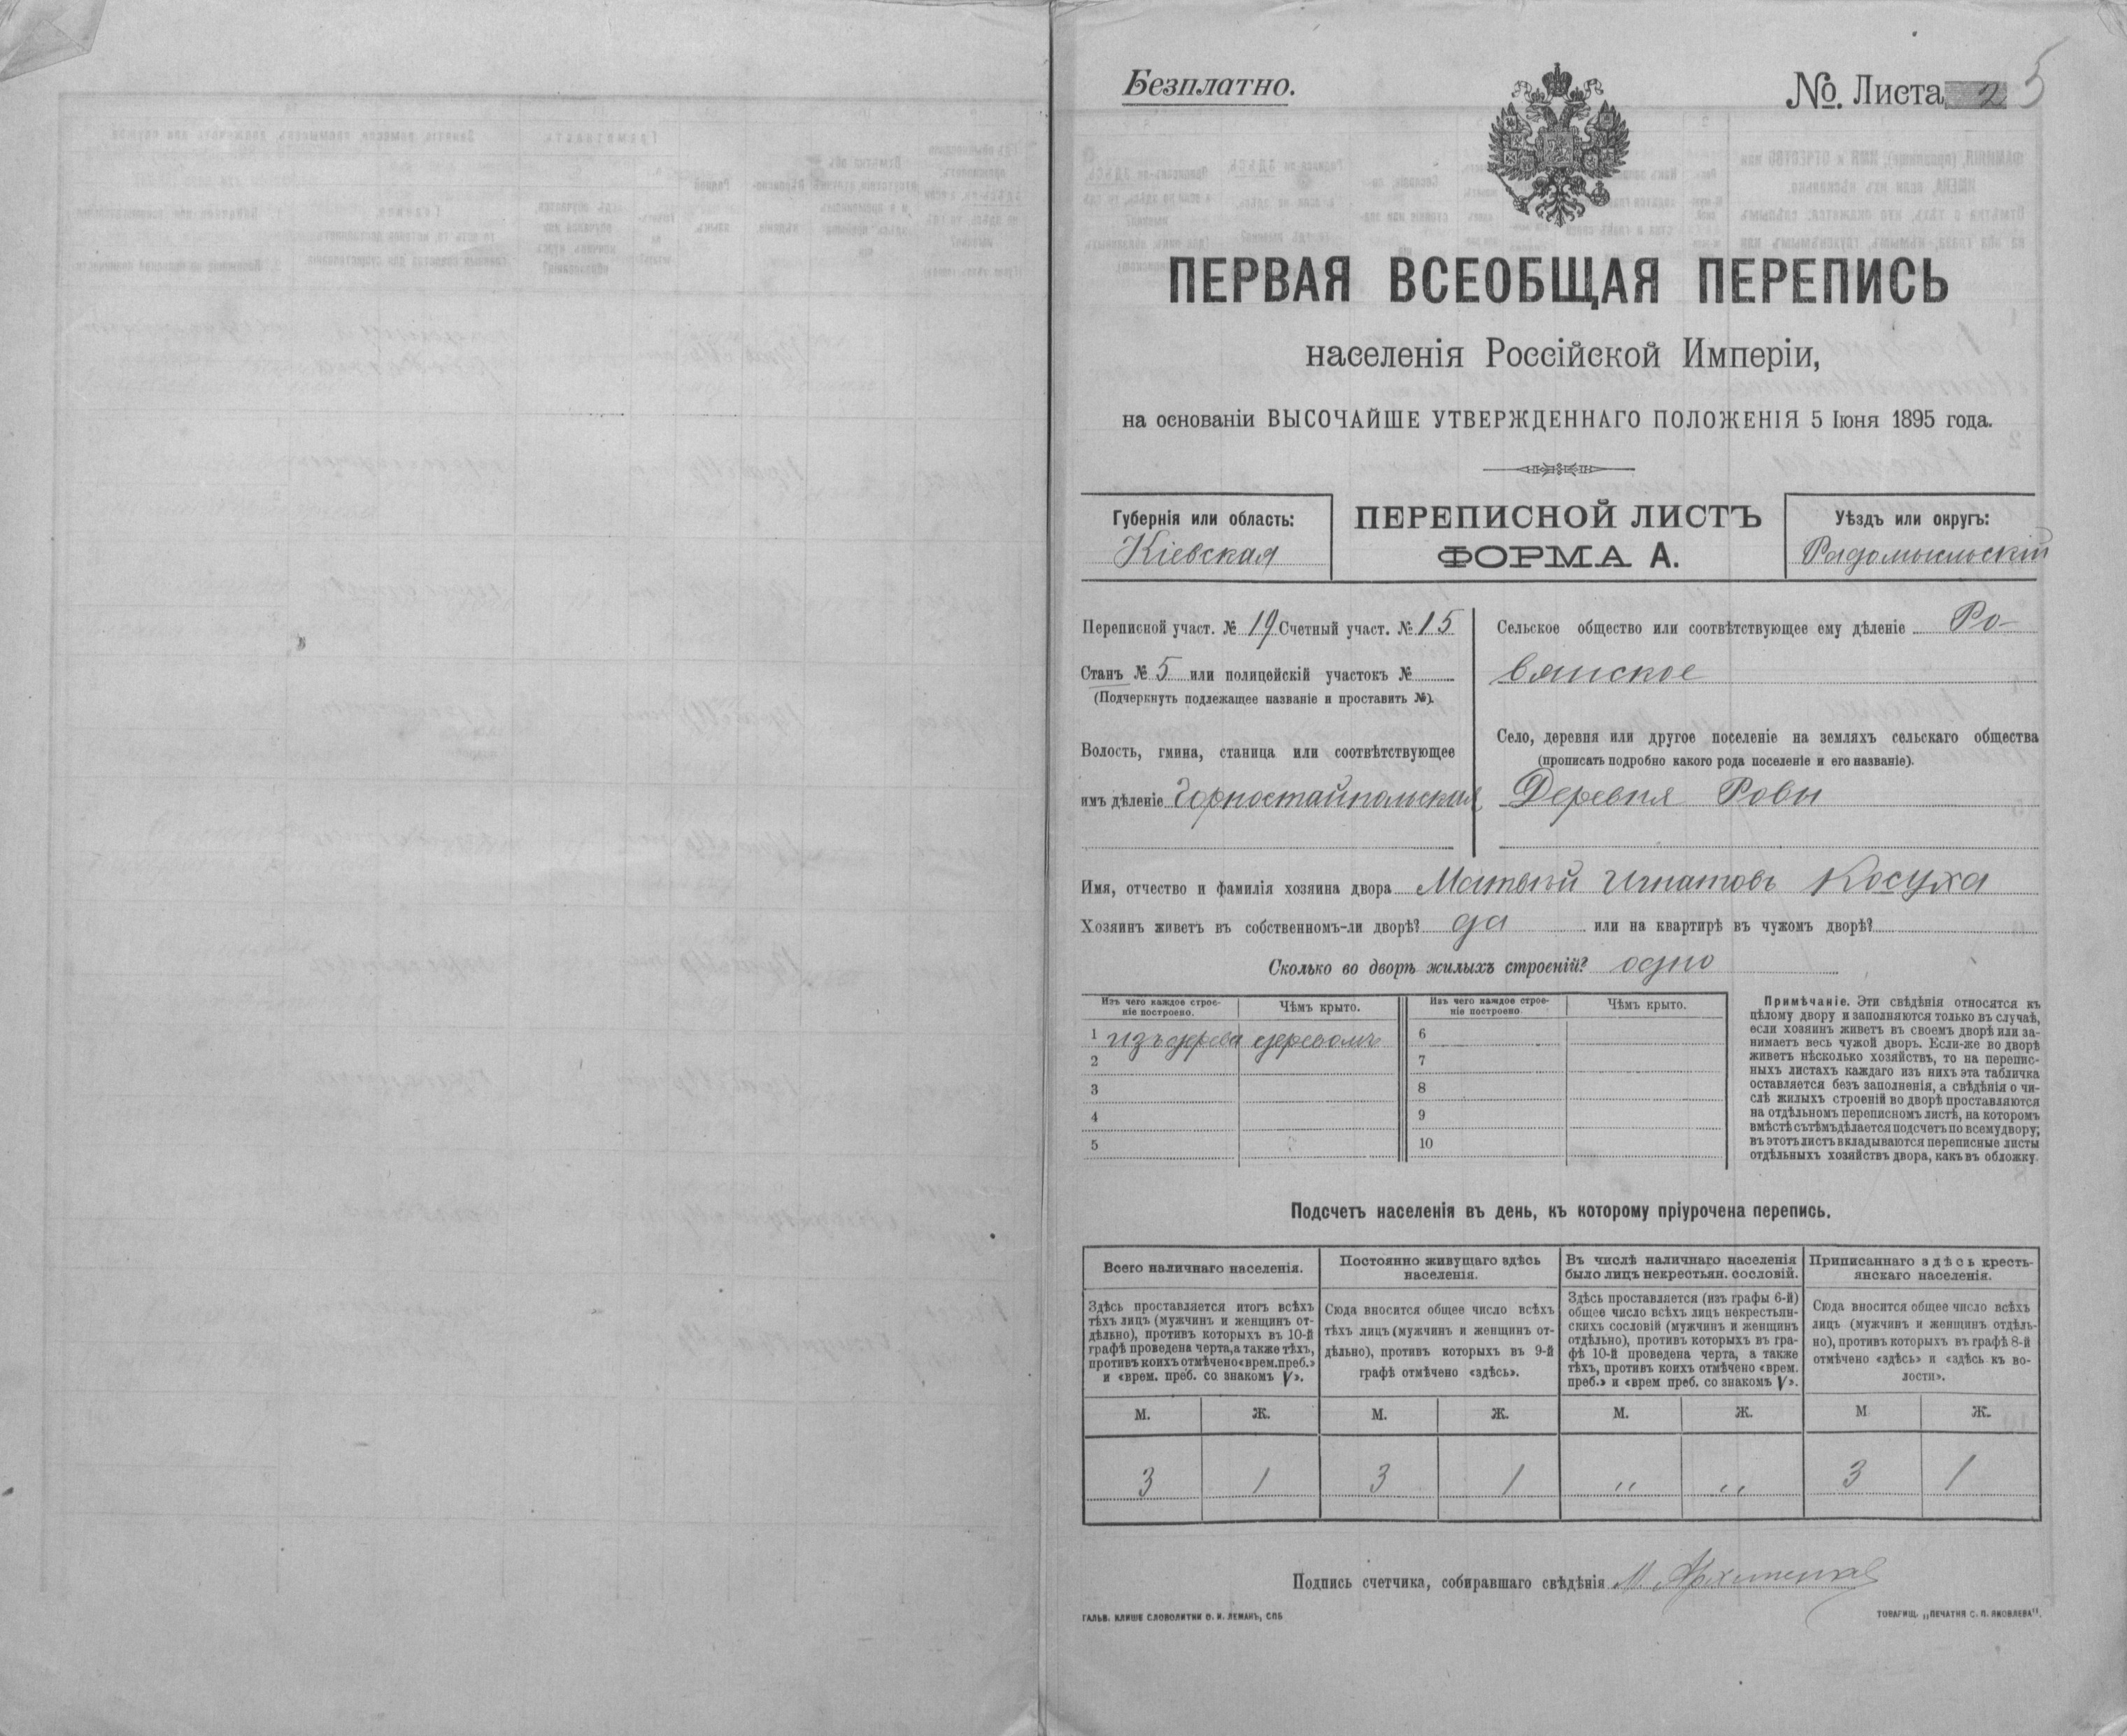 Безплатно.
№. Листа 2 5
ПЕРВАЯ ВСЕОБЩАЯ ПЕРЕПИСЬ
населенія Россійской Имперіи,
на основаніи ВЫСОЧАЙШЕ УТВЕРЖДЕННАГО ПОЛОЖЕНІЯ 5 Іюня 1895 года.
Губернія или область:
Кіевская
ПЕРЕПИСНОЙ ЛИСТЪ
ФОРМА А.
Уѣздъ или округъ:
Радомысльскій
Переписной участ. № 19 Счетный участ. № 15
Станъ № 5 или полицейскій участокъ №
(Подчеркнуть подлежащее названіе и проставить №).
Волость, гмина, станица или соотвѣтствующее
имъ дѣленіе Горностайпольская
Сельское общество или соотвѣтствующее ему дѣленіе Ро-
вянское
Село, деревня или другое поселеніе на земляхъ сельскаго общества
(прописать подробно какого рода поселеніе и его названіе).
Деревня Ровы
Имя, отчество и фамилія хозяина двора Матвѣй Игнатовъ Косуха
Хозяинъ живетъ въ собственномъ-ли дворѣ? да или на квартирѣ въ чужомъ дворѣ?
Сколько во дворѣ жилыхъ строеній? одно
Изъ чего каждое строе-
ніе построено.
Чѣмъ крыто.
Изъ чего каждое строе-
ніе построено.
Чѣмъ крыто.
1 изъ дерева деревомъ 6
2 7
3 8
4 9
5 10
Примѣчаніе. Эти свѣдѣнія относятся къ
цѣлому двору и заполняются только въ случаѣ,
если хозяинъ живетъ въ своемъ дворѣ или за-
нимаетъ весь чужой дворъ. Если-же во дворѣ
живетъ нѣсколько хозяйствъ, то на перепис-
ныхъ листахъ каждаго изъ нихъ эта табличка
оставляется безъ заполненія, а свѣдѣнія о чи-
слѣ жилыхъ строеній во дворѣ проставляются
на отдѣльномъ переписномъ листѣ, на которомъ
вмѣстѣ съ тѣмъ дѣлается подсчетъ по всему двору;
въ этотъ листъ вкладываются переписные листы
отдѣльныхъ хозяйствъ двора, какъ въ обложку.
Подсчетъ населенія въ день, къ которому пріурочена перепись.
Всего наличнаго населенія.
Здѣсь проставляется итогъ всѣхъ
тѣхъ лицъ (мужчинъ и женщинъ от-
дѣльно), противъ которыхъ въ 10-й
графѣ проведена черта, а также тѣхъ,
противъ коихъ отмѣчено «врем. преб.»
и «врем. преб. со знакомъ V».
Постоянно живущаго здѣсь
населенія.
Сюда вносится общее число всѣхъ
тѣхъ лицъ (мужчинъ и женщинъ от-
дѣльно), противъ которыхъ въ 9-й
графѣ отмѣчено «здѣсь».
Въ числѣ наличнаго населенія
было лицъ некрестьян. сословій.
Здѣсь проставляется (изъ графы 6-й)
общее число всѣхъ лицъ некрестьян-
скихъ сословій (мужчинъ и женщинъ
отдѣльно), противъ которыхъ въ гра-
фѣ 10-й проведена черта, а также
тѣхъ, противъ коихъ отмѣчено «врем.
преб.» и «врем преб. со знакомъ V».
Приписаннаго здѣсь кресть-
янскаго населенія.
Сюда вносится общее число всѣхъ
лицъ (мужчинъ и женщинъ отдѣль-
но), противъ которыхъ въ графѣ 8-й
отмѣчено «здѣсь» и «здѣсь къ во-
лости».
М. Ж. М. Ж. М. Ж. М Ж.
3 1 3 1 " " 3 1
Подпись счетчика, собиравшаго свѣдѣнія М.
ГАЛЬВ. КЛИШЕ СЛОВОЛИТНИ О. И. ЛЕМАНЪ, СПБ
ТОВАРИЩ. „ПЕЧАТНЯ С. П. ЯКОВЛЕВА".